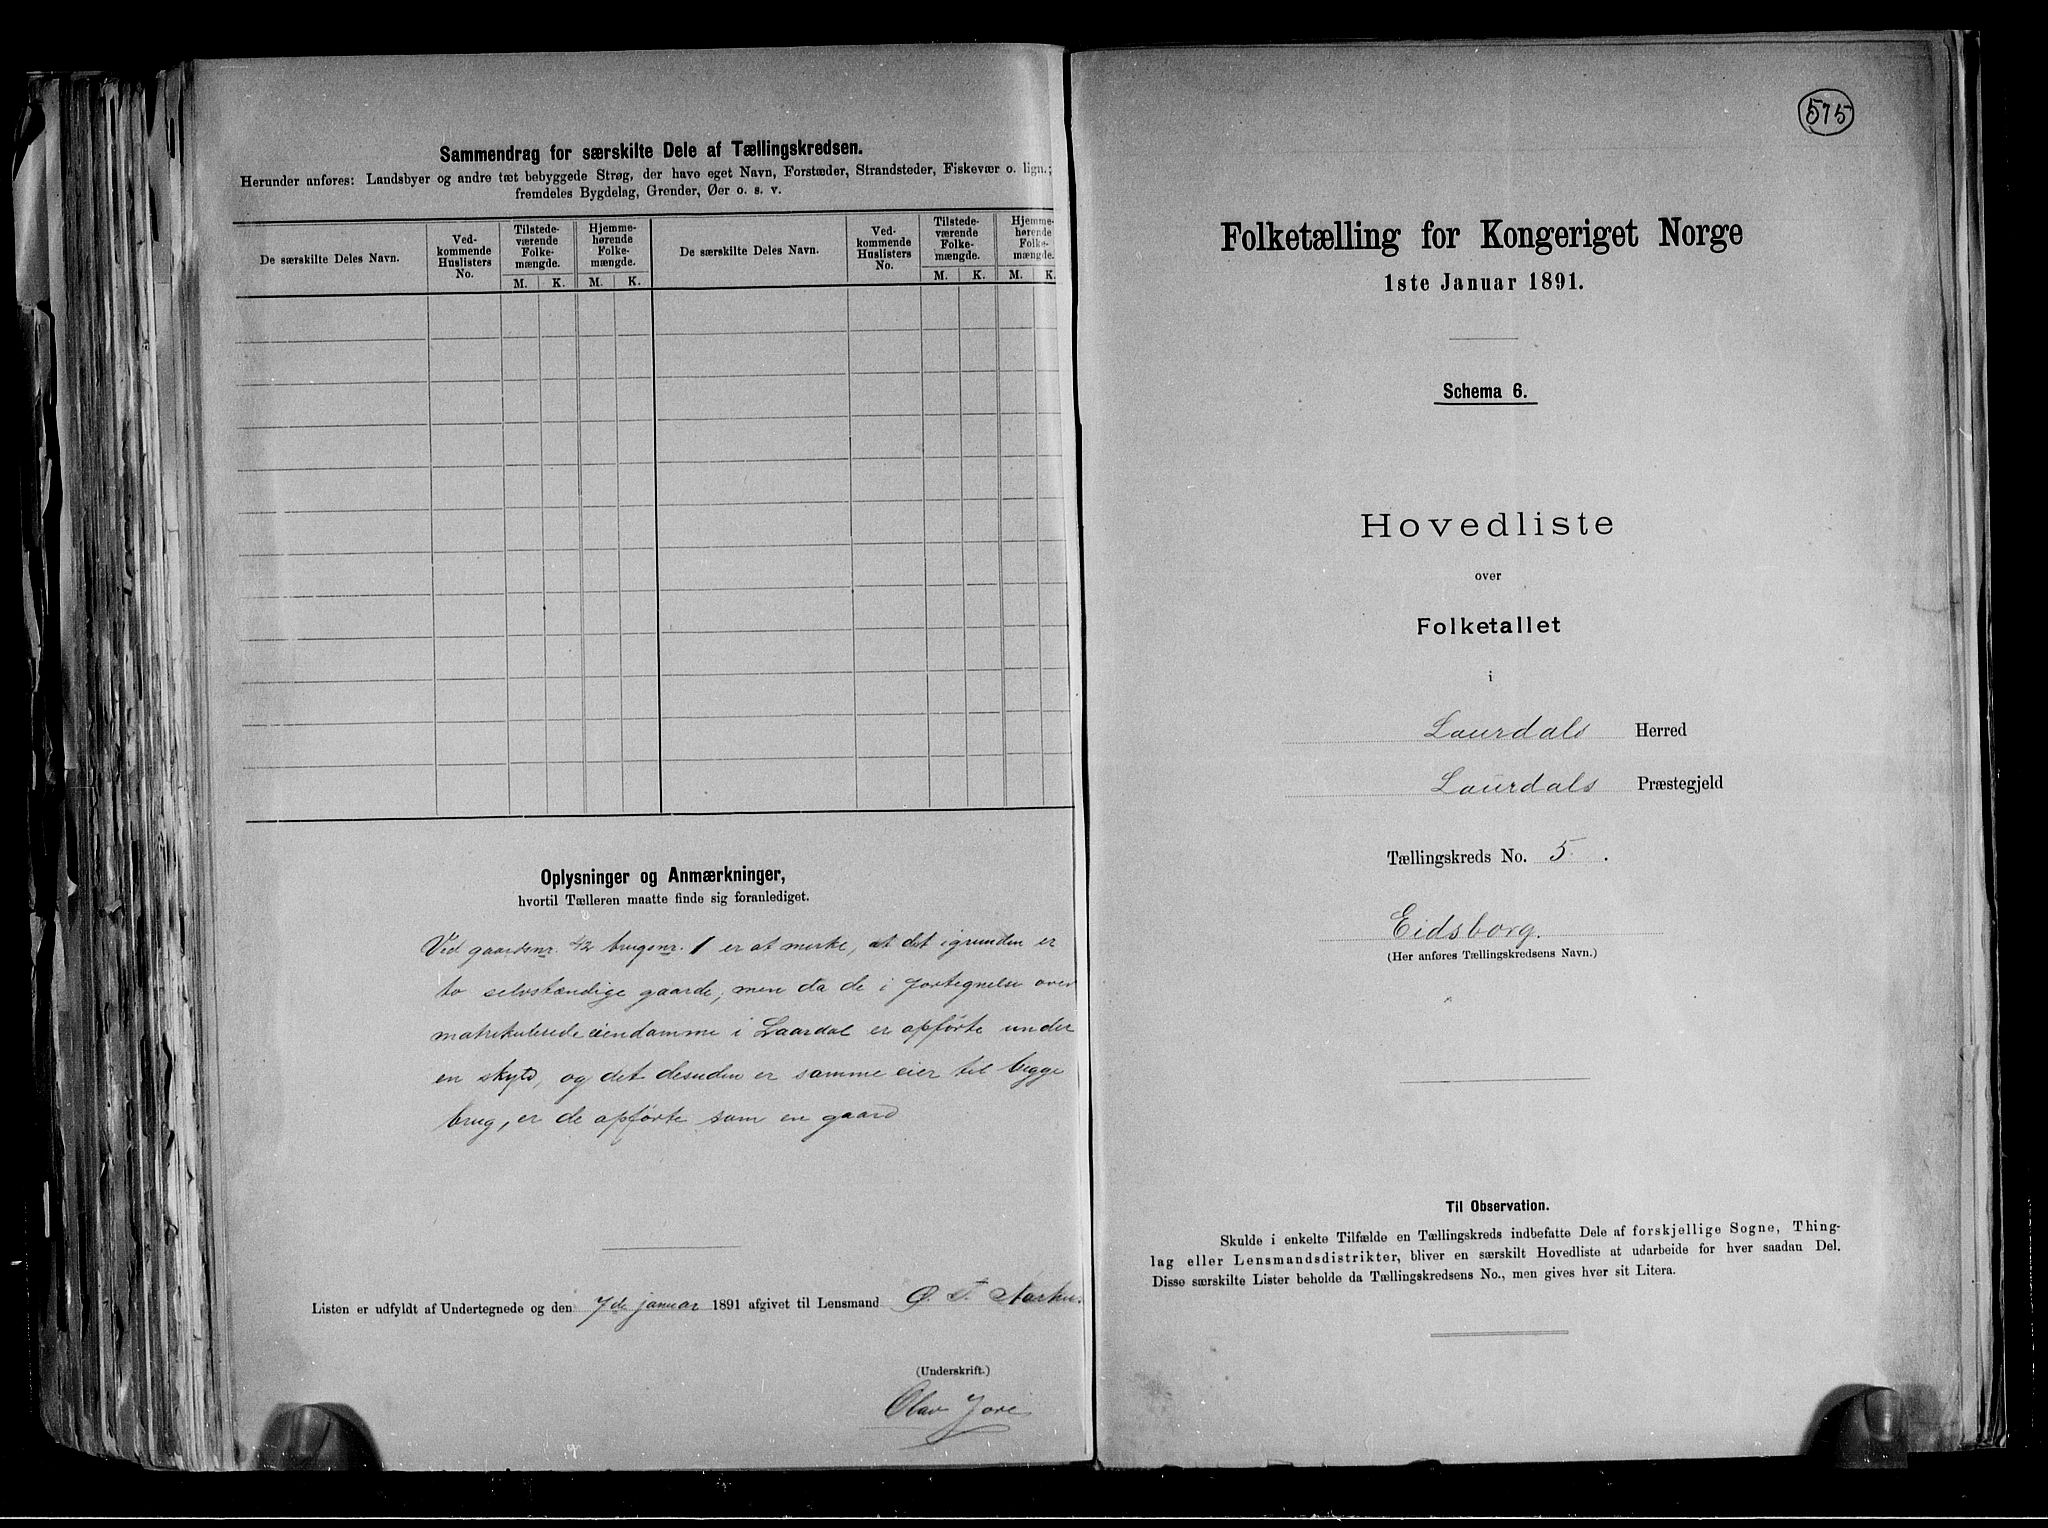 Sammendrag for særskilte Dele af Tællingskredsen.
Herunder anføres: Landsbyer og andre tæt bebyggede Strøg, der have eget Navn, Forstæder, Strandsteder, Fiskevær o. lign.;
fremdeles Bygdelag, Grender, Øer o. s. v.
De særskilte Deles Navn.
Ved-
kommende
Huslisters
No.
Tilstede-
værende
Folke-
mængde.
Hjemme-
hørende
Folke-
mængde.
M. K. M. K.
De særskilte Deles Navn.
Ved-
kommende
Huslisters
No.
Tilstede-
værende
Folke-
mængde.
Hjemme-
hørende
Folke-
mængde.
M. K. M. K.
Oplysninger og Anmærkninger,
hvortil Tælleren maatte finde sig foranlediget.
Ved gaardsnr. 42 brugsnr. 1 er at merke, at det igrunden er
to selvstændige gaarde; men da de i fortegnelse over
matrikulerede eiendamme i Laardal er opførte under
en skyld, og det desuden er samme eier til begge
brug, er de opførte som en gaard
Listen er udfyldt af Undertegnede og den 7de januar 1891 afgivet til Lensmand Ø. T.
(Underskrift.)
Olav
575
Folketælling for Kongeriget Norge
1ste Januar 1891.
Schema 6.
Hovedliste
over
Folketallet
i
Laurdals Herred
Laurdals Præstegjeld
Tællingskreds No. 5.
Eidsborg.
(Her anføres Tællingskredsens Navn.)
Til Observation.
Skulde i enkelte Tilfælde en Tællingskreds indbefatte Dele af forskjellige Sogne, Thing-
lag eller Lensmandsdistrikter, bliver en særskilt Hovedliste at udarbeide for hver saadan Del.
Disse særskilte Lister beholde da Tællingskredsens No., men gives hver sit Litera.